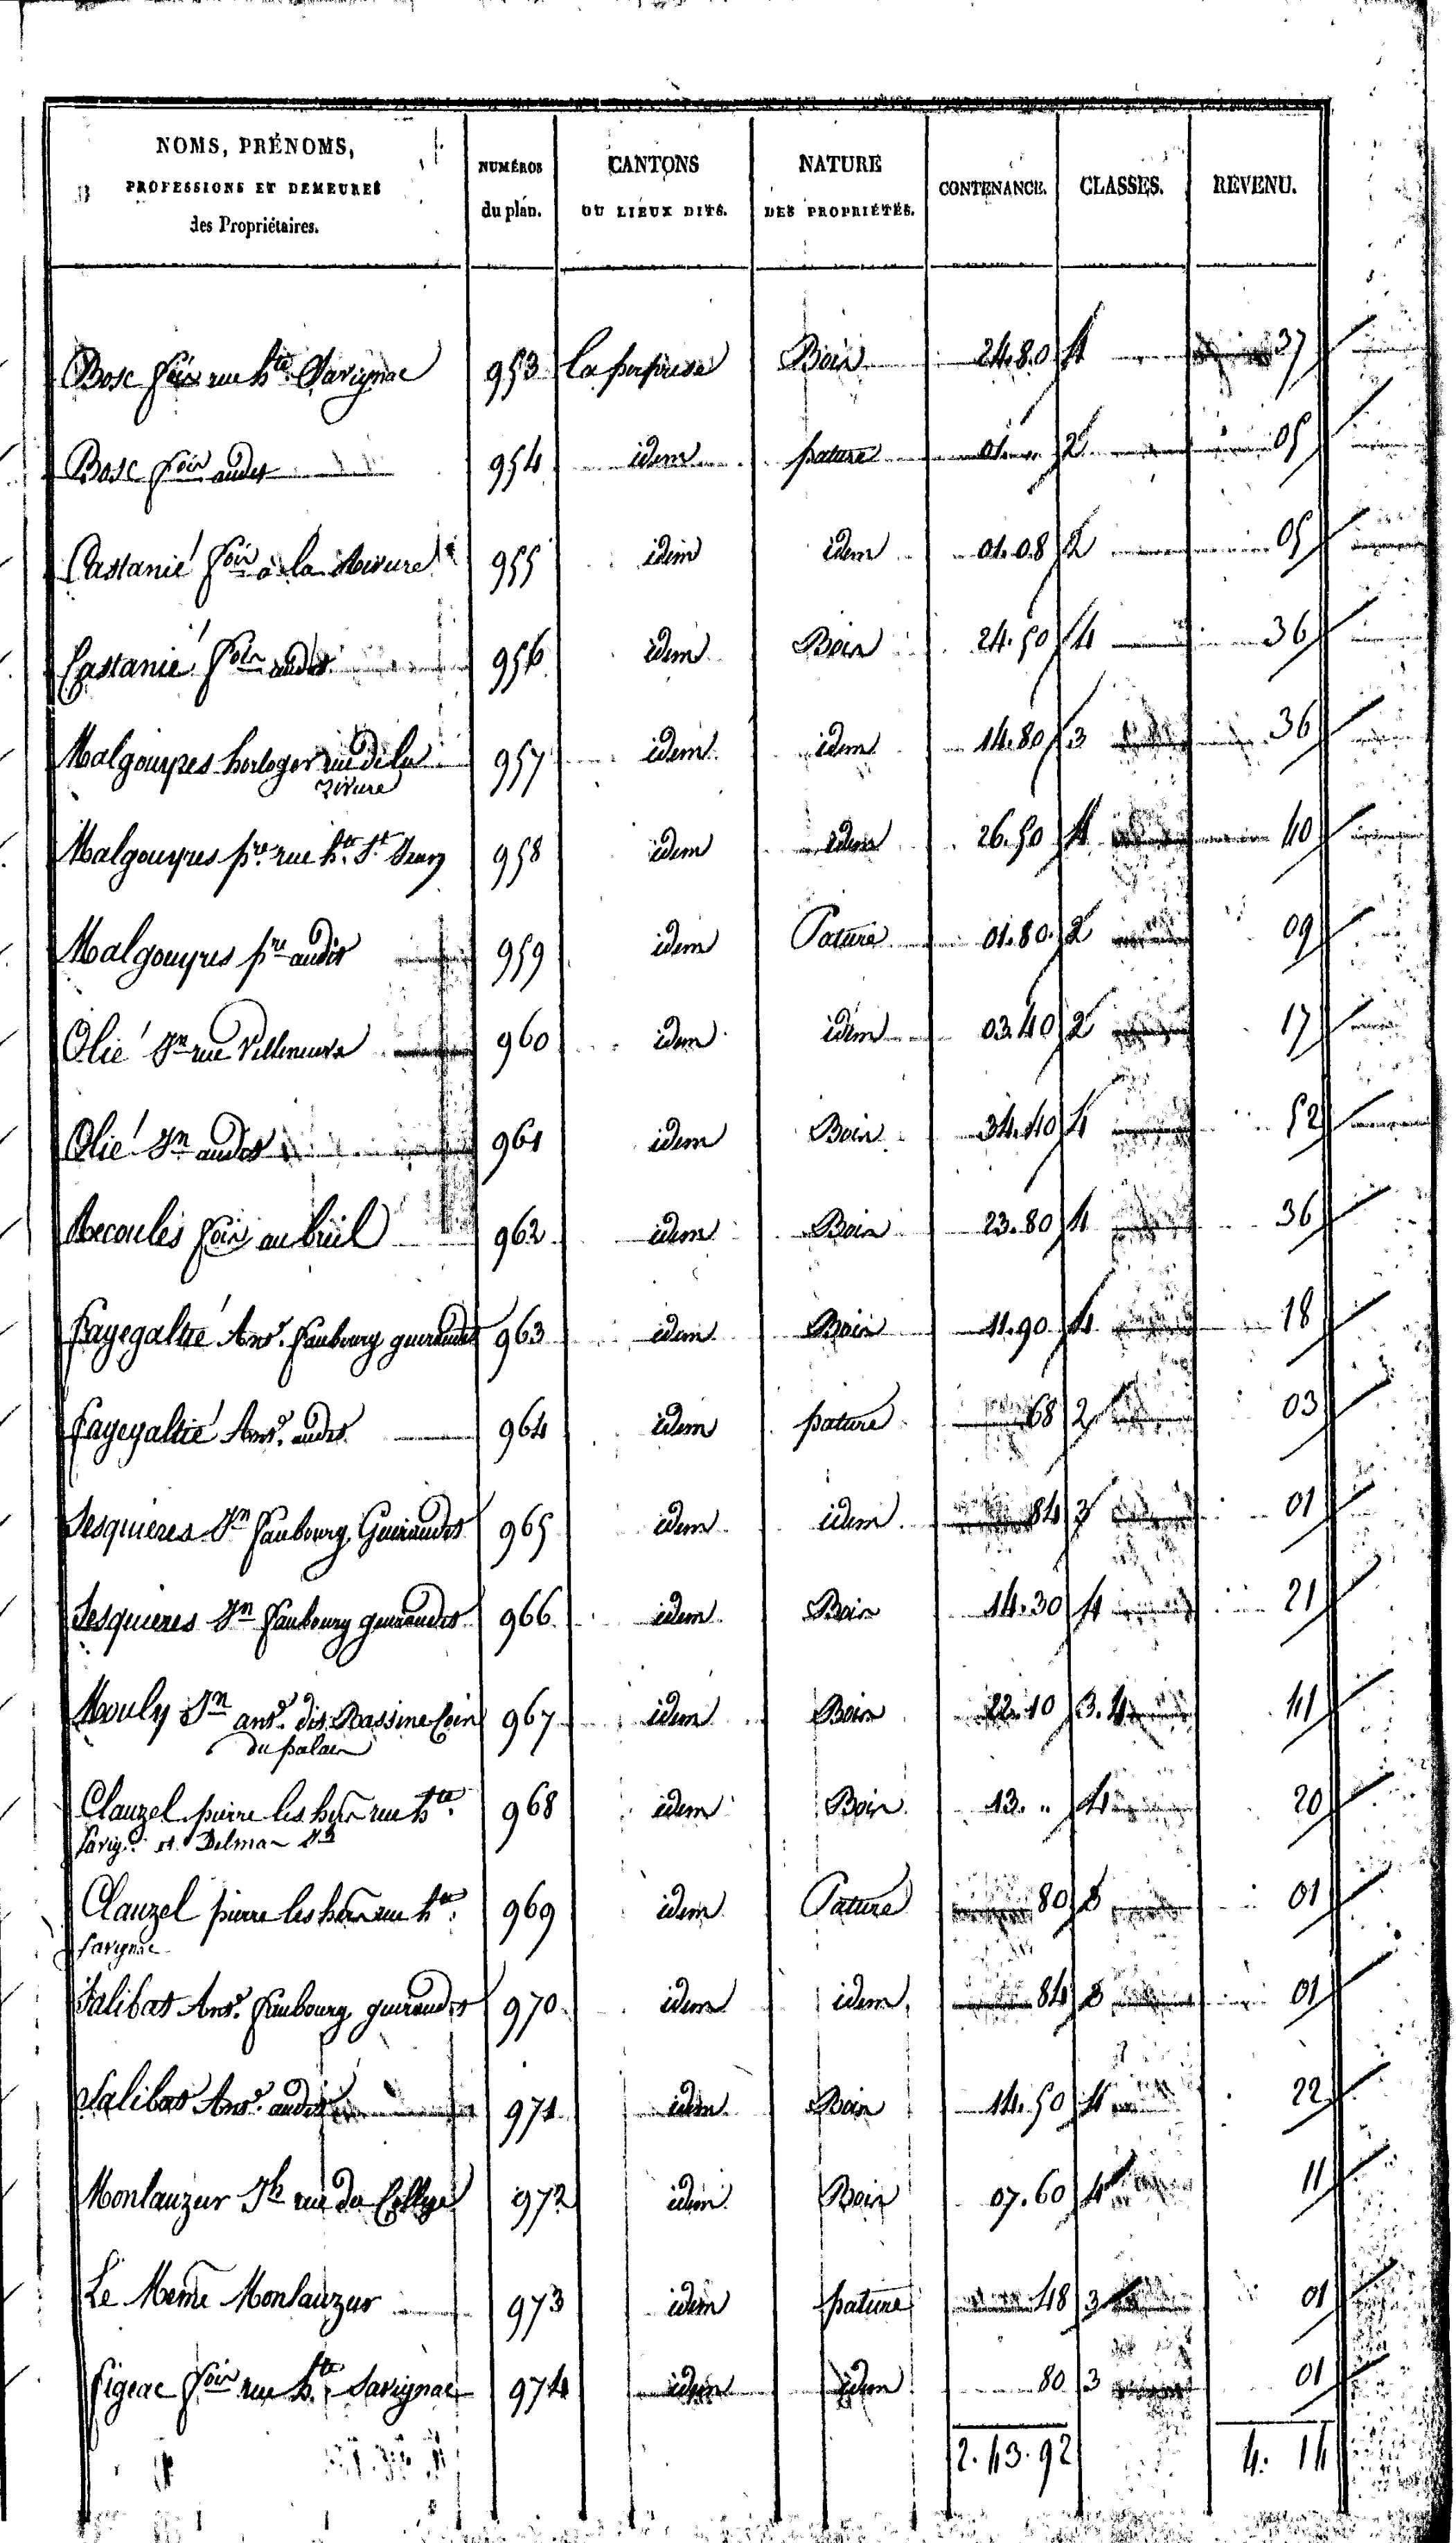 NOMS, PRÉNOMS, PROFESSIONS ET DEMEURES des Propriétaires. NUMÉROS du plan. CANTONS OU LIEUX DITS. NATURE DES PROPRIÉTÉS. CONTENANCE. CLASSES. REVENU.
Bosc fois rue hte Savignac 953 La perprise Bois 24.80 4 37
Bosc fois audit 954 idem pature 01. " 2 05
Castanié fois à la 955 idem idem 01.08 2 05
Castanié fois audit 956 idem Bois 24.50 4 36
Malgouyres horloger rue de la 957 idem idem 14.80 3 36
rivière
Malgouyres pre rue hte St Jean 958 idem idem 26.50 4 40
Malgouyres pre audit 959 idem Pature 01.80 2 09
Olié Jn rue Villeneuve 960 idem idem 03.40 2 17
Olié Jn audit 961 idem Bois 34.40 4 52
Recoules fois au breil 962 idem Bois 23.80 4 36
Fayegaltié Ant. faubourg guiraudet 963 idem Bois 11.90 4 18
Fayegaltié Ant. audit 964 idem pature 68 2 03
Sesquieres Jn faubourg Guiraudet 965 idem idem 84 3 01
Sesquieres Jn faubourg guiraudet 966 idem Bois 14.30 4 21
Mouly Jn ant. dit Bassine Coin 967 idem Bois 22.10 3.4 41
du palais
Clauzel pierre les hers rue hte 968 idem Bois 13. " 4 20
Savig. et Delmas Jn
Clauzel pierre les hers rue hte 969 idem Pature 80 3 01
Savignac
Salibas Ant. faubourg guiraudet 970 idem idem 84 3 01
Salibas Ant. audit 971 idem Bois 14.50 4 22
Monlauzur Jh rue du College 972 idem Bois 07.60 4 11
Le Meme Monlauzur 973 idem pature 48 3 01
Figeac fois rue hte Savignac 974 idem idem 80 3 01
2.43.92 4. 14